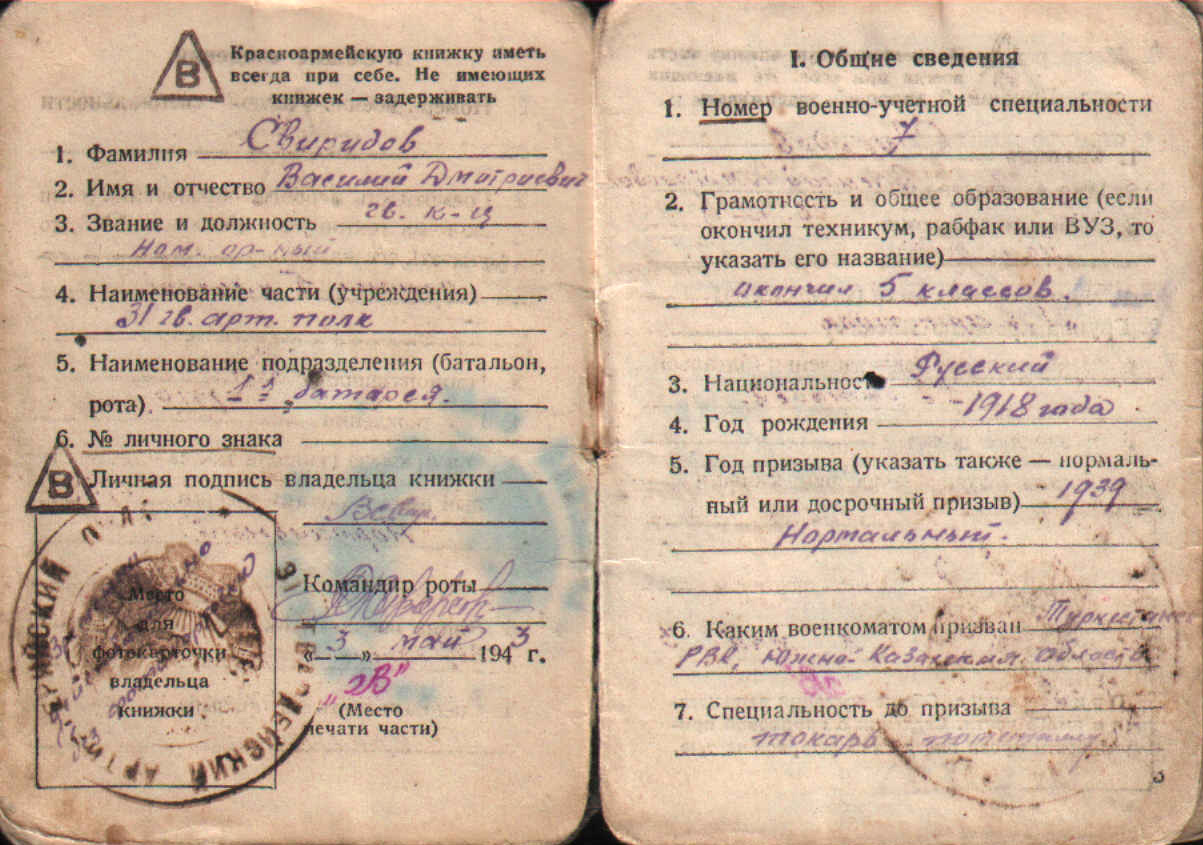 В
Красноармейскую книжку иметь
всегда при себе. Не имеющих
книжек — задерживать
1. Фамилия Свиридов
2. Имя и отчество Василий Дмитриевич
3. Звание и должность гв. к-ц
4. Наименование части (учреждения)
31 гв. арт. полк
5. Наименование подразделения (батальон,
рота) 1я батарея.
6. № личного знака
В
Личная подпись владельца книжки
Командир роты
«3» май 1943 г.
"2В"
(Место
печати части)
Место
для
фотокарточки
владельца
книжки
I. Общие сведения
1. Номер военно-учетной специальности
7
2. Грамотность и общее образование (если
окончил техникум, рабфак или ВУЗ, то
указать его название)
окончил 5 классов.
3. Национальность Русский
4. Год рождения 1918 года
5. Год призыва (указать также — нормаль-
ный или досрочный призыв) 1939
Нормальный.
6. Каким военкоматом призван
РВК, Южно-Казахская область
7. Специальность до призыва
токарь по металлу
3